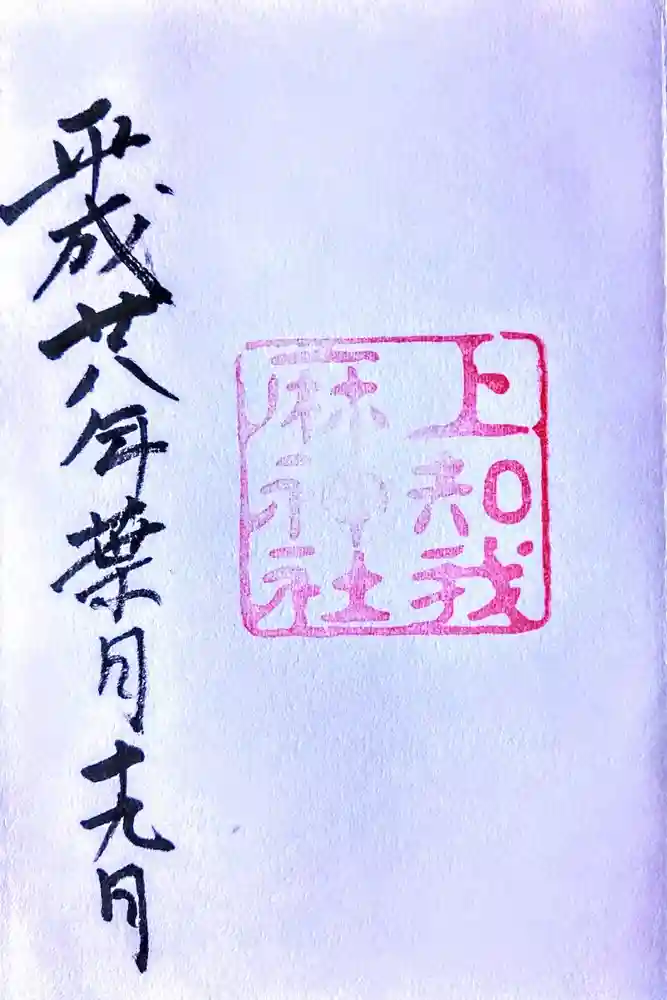 上知我
麻神社
平成廿八年葉月十九日